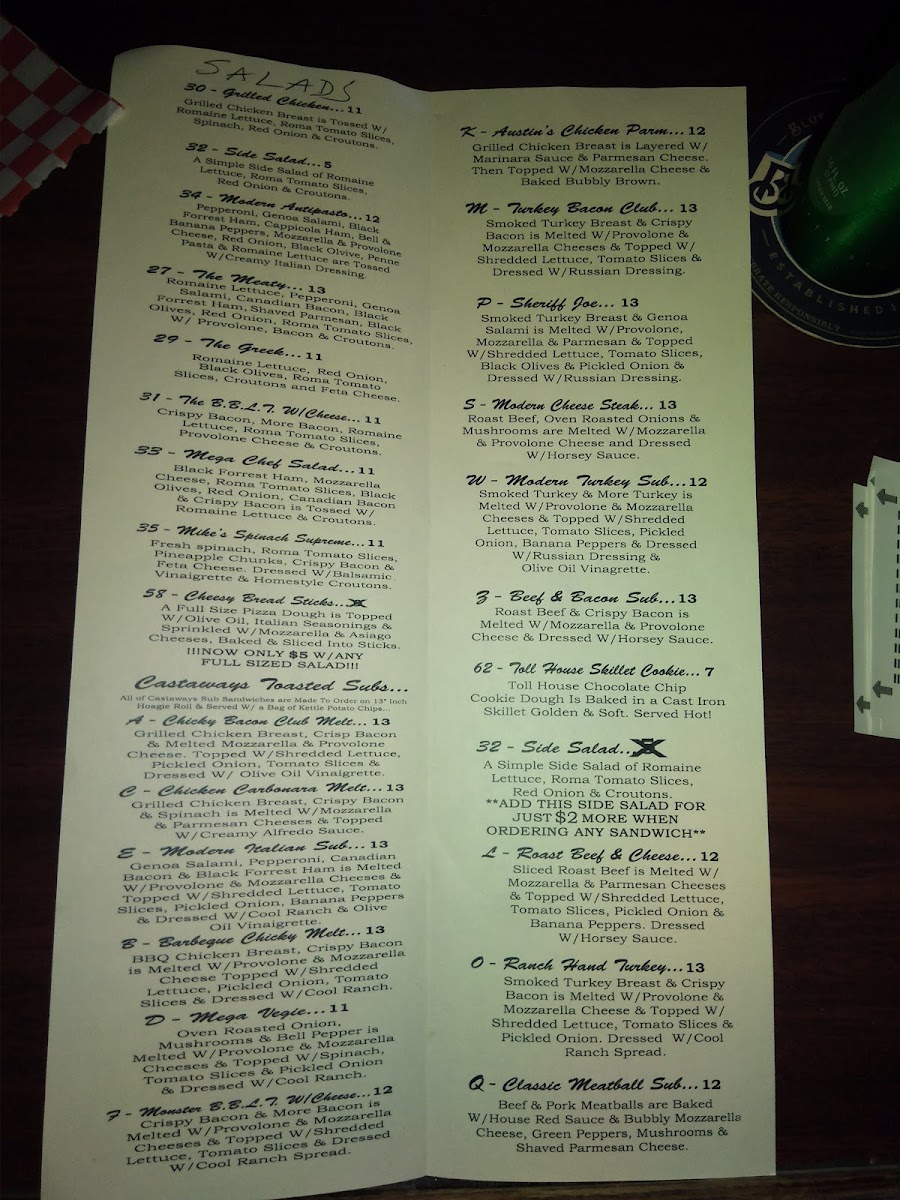 SALADS
30 - Grilled Chicken...11
Grilled Chicken Breast is Tossed W/
Romaine Lettuce, Roma Tomato Slices,
Spinach, Red Onion & Croutons.
32 - Side Salad...5
A Simple Side Salad of Romaine
Lettuce, Roma Tomato Slices,
Red Onion & Croutons.
34 - Modern Antipasto...12
Pepperoni, Genoa Salami, Black
Forrest Ham, Cappicola Ham, Bell &
Banana Peppers, Mozzarella & Provolone
Cheese, Red Onion, Black Olvive, Penne
Pasta & Romaine Lettuce are Tossed
W/Creamy Italian Dressing.
27 - The Meaty... 13
Romaine Lettuce, Pepperoni, Genoa
Salami, Canadian Bacon, Black
Forrest Ham, Shaved Parmesan, Black
Olives, Red Onion, Roma Tomato Slices,
W/ Provolone, Bacon & Croutons.
29 - The Greek...11
Romaine Lettuce, Red Onion,
Black Olives, Roma Tomato
Slices, Croutons and Feta Cheese.
31 - The B.B.L.T. W/Cheese... 11
Crispy Bacon, More Bacon, Romaine
Lettuce, Roma Tomato Slices,
Provolone Cheese & Croutons.
33 - Mega Chef Salad...11
Black Forrest Ham, Mozzarella
Cheese, Roma Tomato Slices, Black
Olives, Red Onion, Canadian Bacon
& Crispy Bacon is Tossed W/
Romaine Lettuce & Croutons.
35 - Mike's Spinach Supreme...11
Fresh spinach, Roma Tomato Slices,
Pineapple Chunks, Crispy Bacon &
Feta Cheese. Dressed W/Balsamic
Vinaigrette & Homestyle Croutons.
58 - Cheesy Bread Sticks...
A Full Size Pizza Dough is Topped
W/Olive Oil, Italian Seasonings &
Sprinkled W/Mozzarella & Asiago
Cheeses, Baked & Sliced Into Sticks.
!!!NOW ONLY $5 W/ANY
FULL SIZED SALAD!!!
Castaways Toasted Subs...
All of Castaways Sub Sandwiches are Made To Order on 13" Inch
Hoagie Roll & Served W/ a Bag of Kettle Potato Chips...
A - Chicky Bacon Club Melt... 13
Grilled Chicken Breast, Crisp Bacon
& Melted Mozzarella & Provolone
Cheese. Topped W/Shredded Lettuce,
Pickled Onion, Tomato Slices &
Dressed W/ Olive Oil Vinaigrette.
C - Chicken Carbonara Melt...13
Grilled Chicken Breast, Crispy Bacon
& Spinach is Melted W/Mozzarella
& Parmesan Cheeses & Topped
W/Creamy Alfredo Sauce.
E - Modern Italian Sub... 13
Genoa Salami, Pepperoni, Canadian
Bacon & Black Forrest Ham is Melted
W/Provolone & Mozzarella Cheeses &
Topped W/Shredded Lettuce, Tomato
Slices, Pickled Onion, Banana Peppers
& Dressed W/Cool Ranch & Olive
Oil Vinaigrette.
B - Barbeque Chicky Melt...13
BBQ Chicken Breast, Crispy Bacon
is Melted W/Provolone & Mozzarella
Cheese Topped W/Shredded
Lettuce, Pickled Onion, Tomato
Slices & Dressed W/Cool Ranch.
D - Mega Vegie...11
Oven Roasted Onion,
Mushrooms & Bell Pepper is
Melted W/Provolone & Mozzarella
Cheeses & Topped W/Spinach,
Tomato Slices & Pickled Onion
& Dressed W/Cool Ranch.
F - Monster B.B.L.T. W/Cheese...12
Crispy Bacon & More Bacon is
Melted W/Provolone & Mozzarella
Cheeses & Topped W/Shredded
Lettuce, Tomato Slices & Dressed
W/Cool Ranch Spread.
K - Austin's Chicken Parm...12
Grilled Chicken Breast is Layered W/
Marinara Sauce & Parmesan Cheese.
Then Topped W/Mozzarella Cheese &
Baked Bubbly Brown.
M - Turkey Bacon Club... 13
Smoked Turkey Breast & Crispy
Bacon is Melted W/Provolone &
Mozzarella Cheeses & Topped W/
Shredded Lettuce, Tomato Slices &
Dressed W/Russian Dressing.
P - Sheriff Joe... 13
Smoked Turkey Breast & Genoa
Salami is Melted W/Provolone,
Mozzarella & Parmesan & Topped
W/Shredded Lettuce, Tomato Slices,
Black Olives & Pickled Onion &
Dressed W/Russian Dressing.
S - Modern Cheese Steak...13
Roast Beef, Oven Roasted Onions &
Mushrooms are Melted W/Mozzarella
& Provolone Cheese and Dressed
W/Horsey Sauce.
W - Modern Turkey Sub...12
Smoked Turkey & More Turkey is
Melted W/Provolone & Mozzarella
Cheeses & Topped W/Shredded
Lettuce, Tomato Slices, Pickled
Onion, Banana Peppers & Dressed
W/Russian Dressing &
Olive Oil Vinagrette.
Z - Beef & Bacon Sub...13
Roast Beef & Crispy Bacon is
Melted W/Mozzarella & Provolone
Cheese & Dressed W/Horsey Sauce.
62 - Toll House Skillet Cookie... 7
Toll House Chocolate Chip
Cookie Dough Is Baked in a Cast Iron
Skillet Golden & Soft. Served Hot!
32 - Side Salad...5
A Simple Side Salad of Romaine
Lettuce, Roma Tomato Slices,
Red Onion & Croutons.
**ADD THIS SIDE SALAD FOR
JUST $2 MORE WHEN
ORDERING ANY SANDWICH**
L - Roast Beef & Cheese...12
Sliced Roast Beef is Melted W/
Mozzarella & Parmesan Cheeses
& Topped W/Shredded Lettuce,
Tomato Slices, Pickled Onion &
Banana Peppers. Dressed
W/Horsey Sauce.
O - Ranch Hand Turkey...13
Smoked Turkey Breast & Crispy
Bacon is Melted W/Provolone &
Mozzarella Cheese & Topped W/
Shredded Lettuce, Tomato Slices &
Pickled Onion. Dressed W/Cool
Ranch Spread.
Q - Classic Meatball Sub...12
Beef & Pork Meatballs are Baked
W/House Red Sauce & Bubbly Mozzarella
Cheese, Green Peppers, Mushrooms &
Shaved Parmesan Cheese.
B
ESTABLISHED
RESPONSIBLY